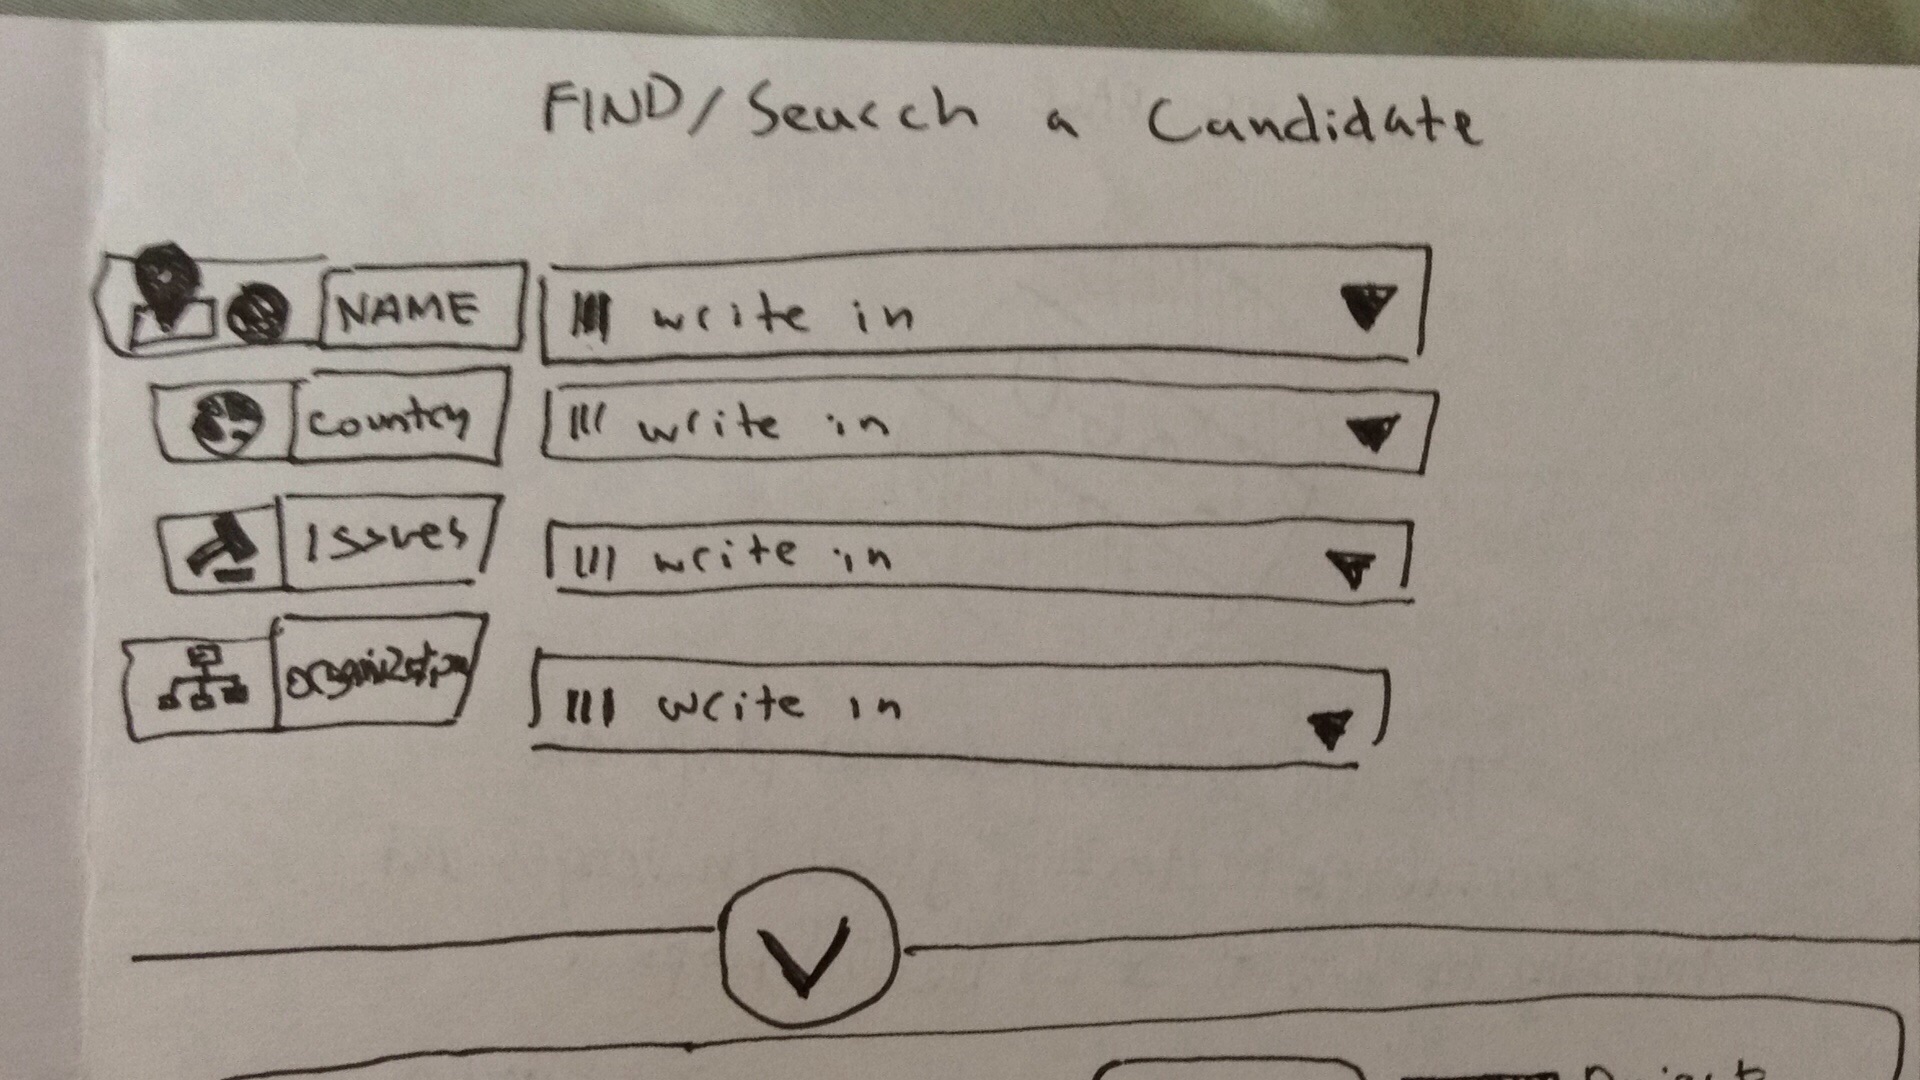 FIND/Search a Candidate
NAME
III write in
Country
III write in
Issues
III write in
organization
III write in